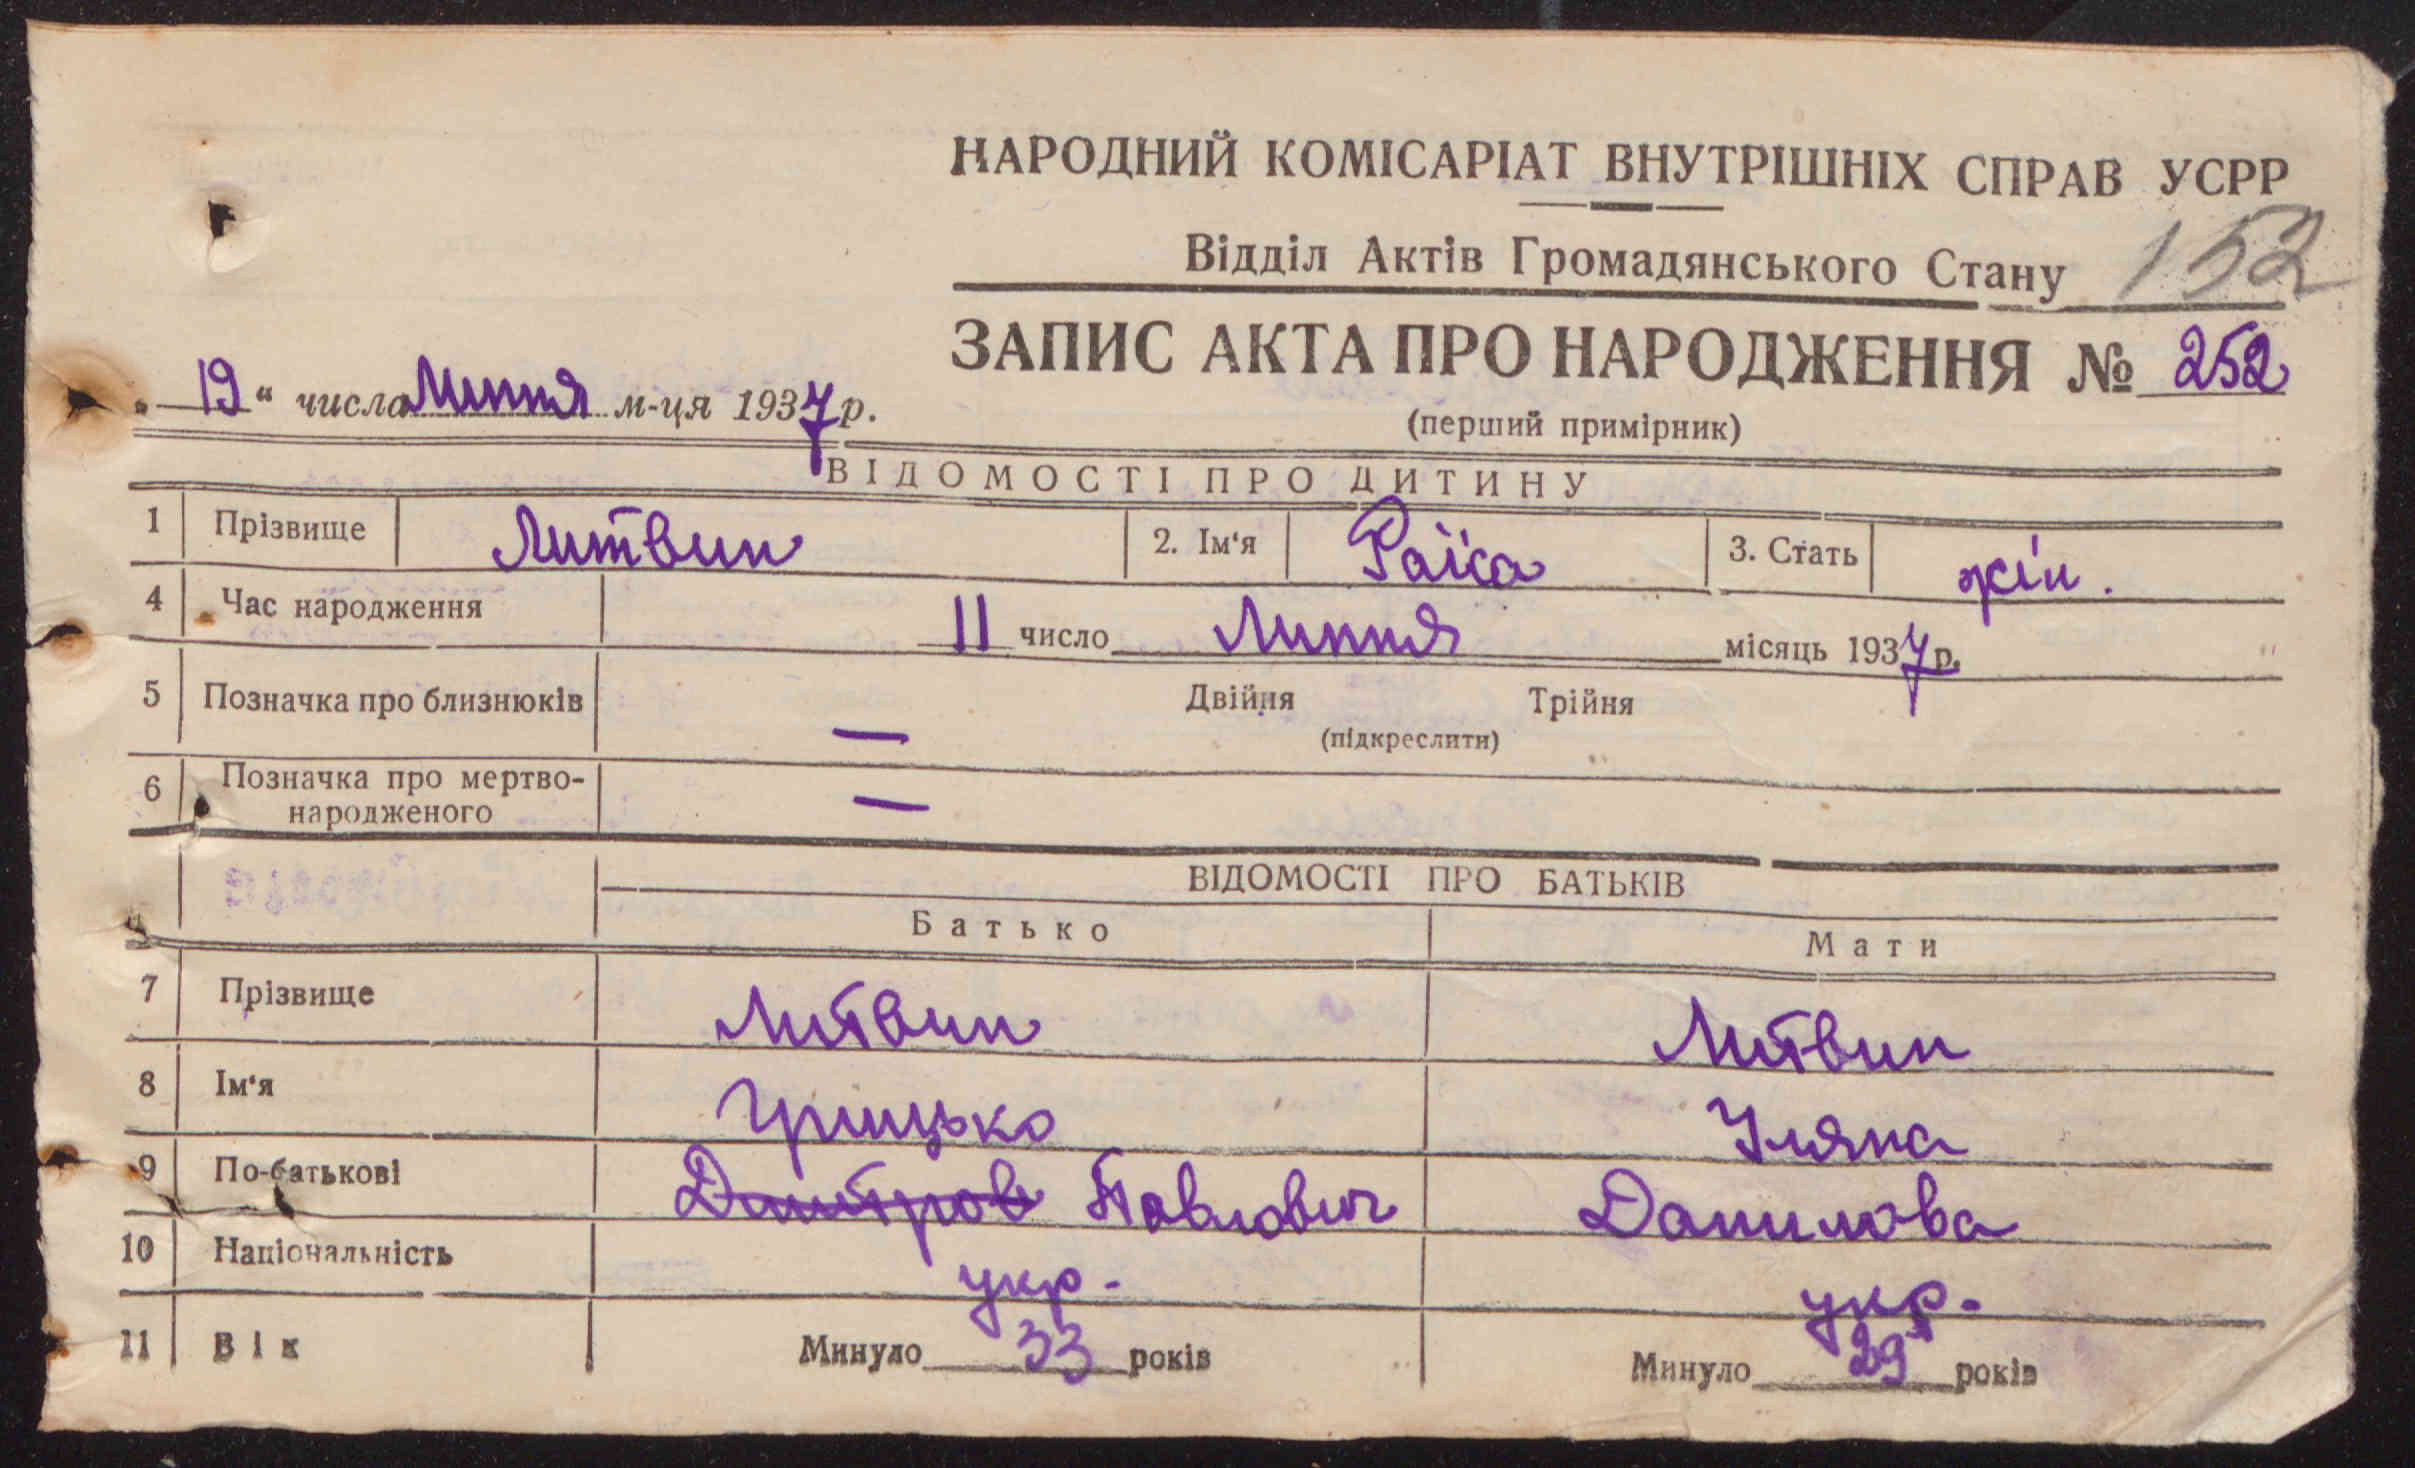 НАРОДНИЙ КОМІСАРІАТ ВНУТРІШНІХ СПРАВ УСРР
Відділ Актів Громадянського Стану 152
ЗАПИС АКТА ПРО НАРОДЖЕННЯ № 252
„ 19 “ числа Липня м-ця 1937 р.
(перший примірник)
ВІДОМОСТІ ПРО ДИТИНУ
1 Прізвище Литвин 2. Ім'я Раїса 3. Стать жін.
4 Час народження 11 число Липня місяць 1937 р.
5 Позначка про близнюків — Двійня Трійня
(підкреслити)
6 Позначка про мертво-
народженого —
ВІДОМОСТІ ПРО БАТЬКІВ
Батько Мати
7 Прізвище Литвин Литвин
8 Ім'я Грицько Уляна
9 По-батькові Дмитров Павлович Данилова
10 Національність укр. укр.
11 Вік Минуло 33 років Минуло 29 років